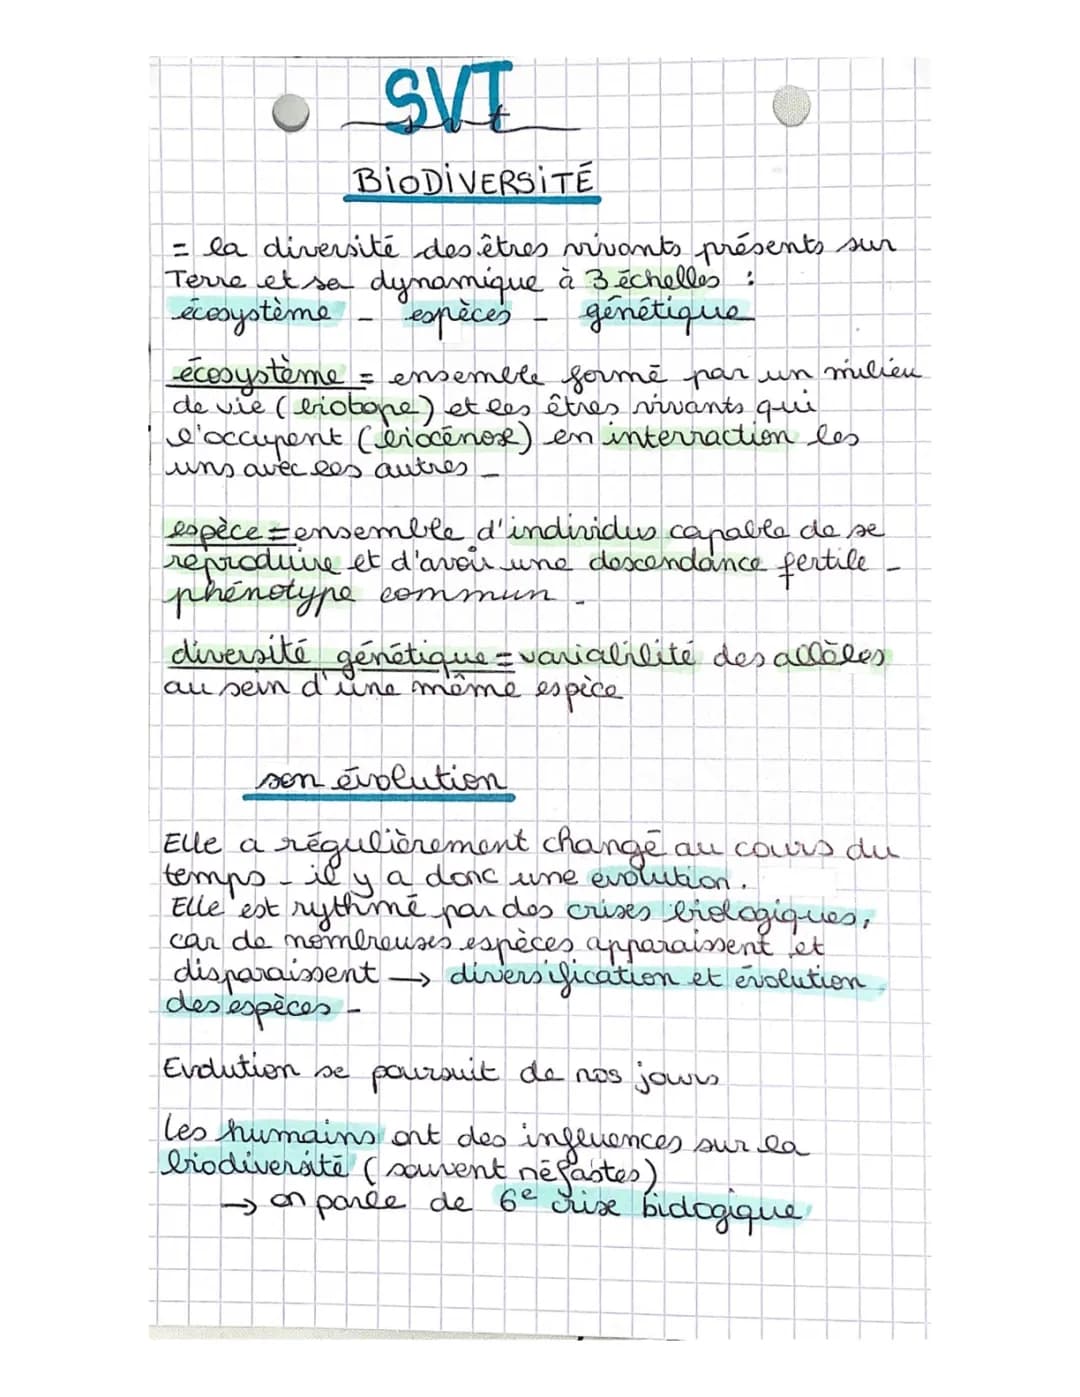 SVT
svt
BIODIVERSITÉ
= la diversité des êtres vivants présents sur
Terre et sa dynamique à 3 échelles :
écosystème - espèces - génétique
écosystème = ensemble formé par un milieu
de vie (biotope) et les êtres vivants qui
l'occupent (biocénose) en interraction les
uns avec les autres -
espèce = ensemble d'individus capable de se
reproduire et d'avoir une descendance fertile -
phénotype commun -
diversité génétique = variabilité des allèles
au sein d'une même espèce
son évolution
Elle a régulièrement changé au cours du
temps - il y a donc une évolution.
Elle est rythmé par des crises biologiques,
car de nombreuses espèces apparaissent et
disparaissent → diversification et évolution
des espèces -
Evolution se poursuit de nos jours
Les humains ont des influences sur la
biodiversité (souvent néfastes)
→ on parle de 6e crise biologique